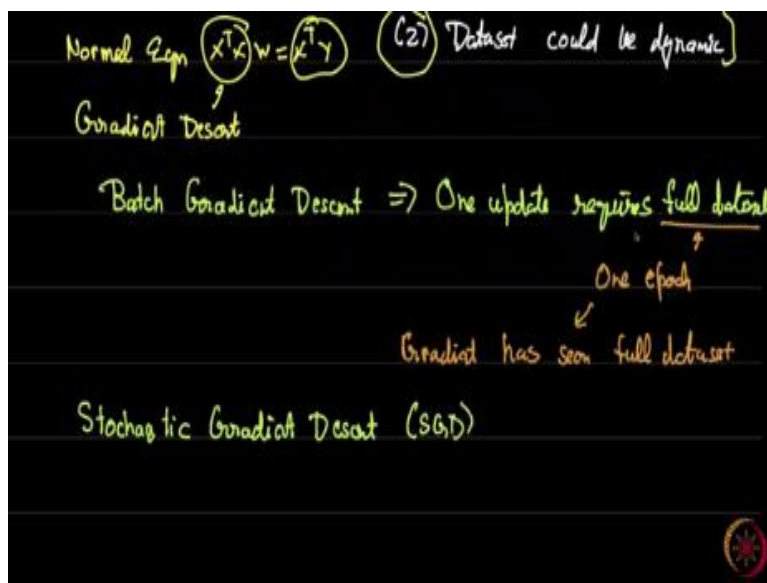 Normal Eqn XᵀX w = XᵀY (2) Dataset could be dynamic]
Gradient Descent
Batch Gradient Descent => One update requires full dataset
One epoch
Gradient has seen full dataset
Stochastic Gradient Descent (SGD)